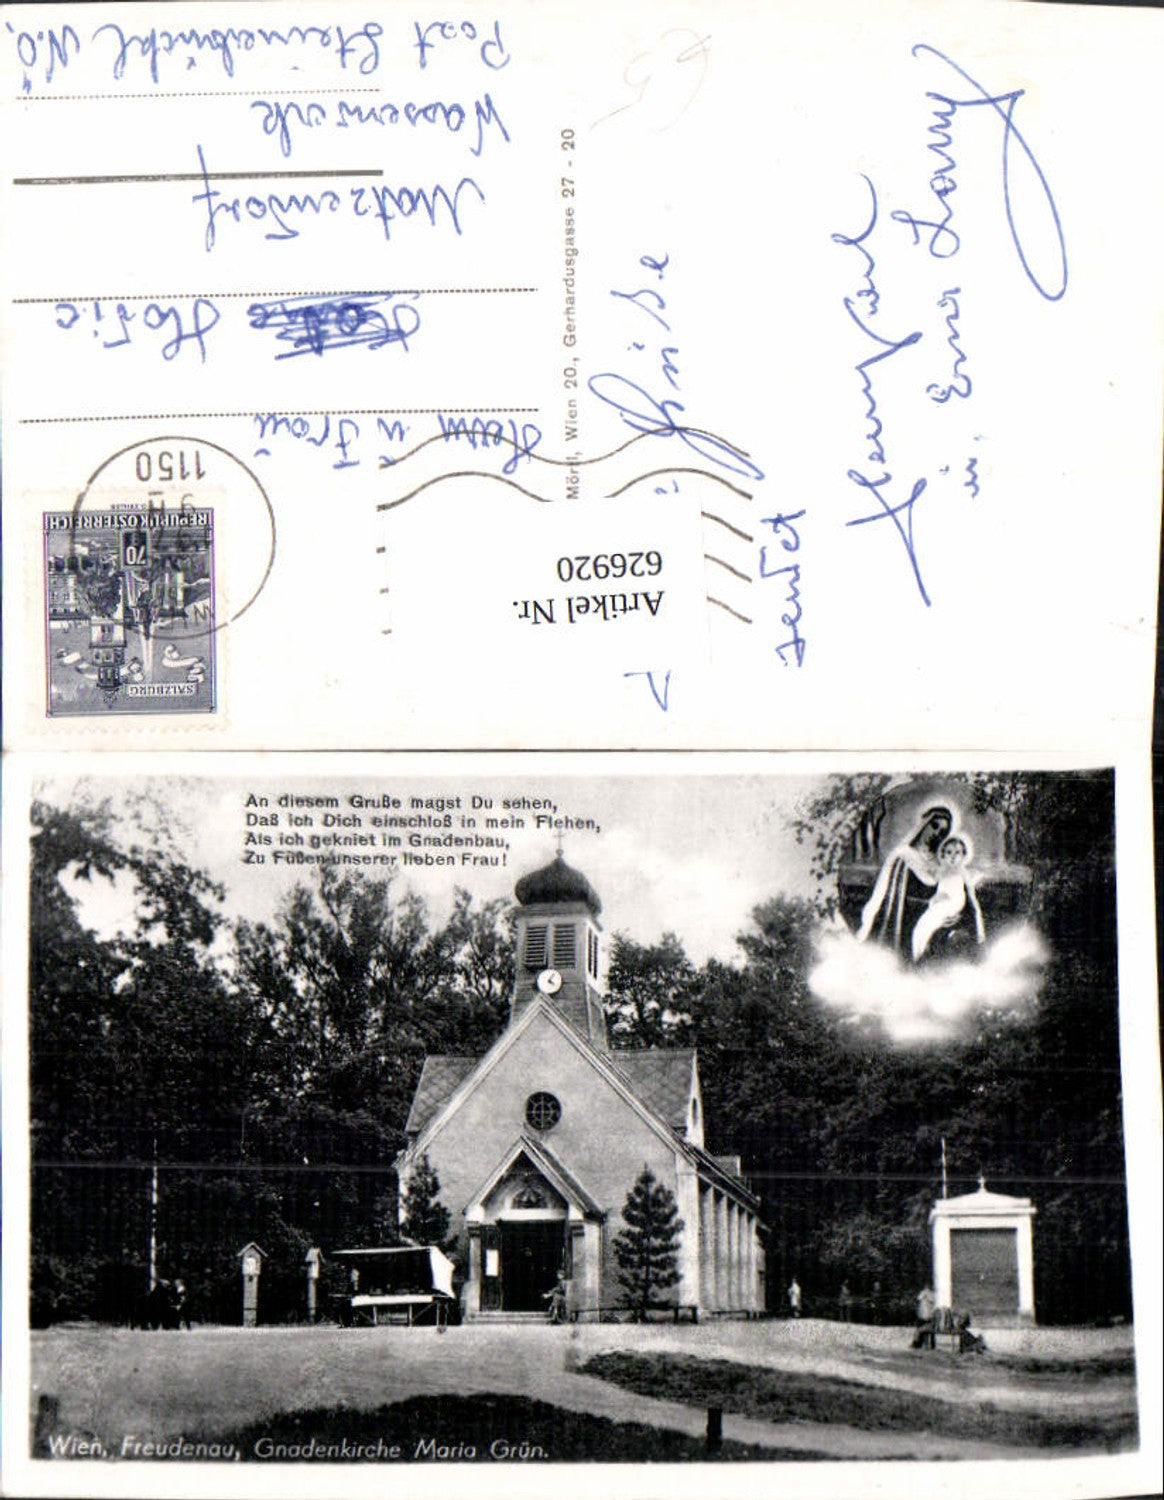 Herrn u Frau
Hofic
Matzendorf
Wasserwerk
Post Steinabrückl N.Ö.
Grüße
sendet
u. Erna
Mörtl, Wien 20., Gerhardusgasse 27 - 20
1150
REPUBLIK ÖSTERREICH
70
SALZBURG
Artikel Nr.
626920
An diesem Gruße magst Du sehen,
Daß ich Dich einschloß in mein Flehen,
Als ich gekniet im Gnadenbau,
Zu Füßen unserer lieben Frau!
Wien, Freudenau, Gnadenkirche Maria Grün.